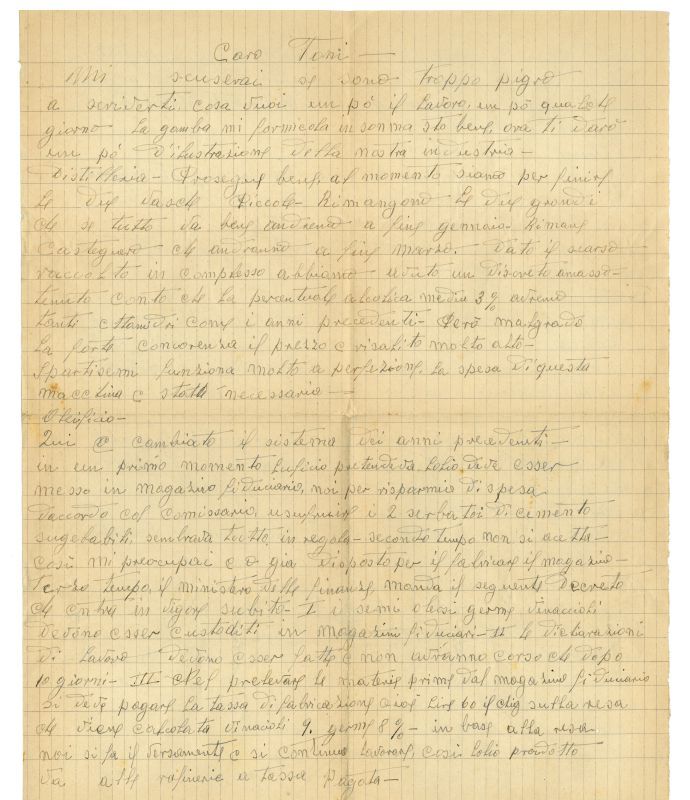 Caro Toni —
Mi scuserai se sono troppo pigro
a scriverti, cosa vuoi un pò il lavoro, un pò qualche
giorno la gamba mi formicola insomma sto bene, ora ti darò
un pò d'ilustrazione della nostra industria —
Distilleria — Prosegue bene, al momento siamo per finire
le due vasche piccole — Rimangono le due grandi
che se tutto va bene andremo a fine gennaio — Rimane
Casteguero che andranno a fine Marzo. Dato il scarso
raccolto in complesso abbiamo avuto un discreto amasso —
tenuto conto che la percentuale alcolica media 3% avremo
tanti ettanidri come i anni precedenti — Però malgrado
la forte concorenza il prezzo è risalito molto alto —
Spartisemi funziona molto a perfezione, la spesa di questa
macchina è stata necessaria —
Oleificio —
Qui è cambiato il sistema dei anni precedenti —
in un primo momento luficio pretendeva lolio deve esser
messo in magazino fiduciario, noi per risparmio di spesa
daccordo col comissario, usufruire i 2 serbatoi di cemento
sugebabiti sembrava tutto in regola — secondo tempo non si acetta —
così mi preocupai e o gia disposto per il fabricare il magazino —
Terzo tempo, il ministero delle finanze, manda il seguente decreto
che entra in vigore subito — I i semi oleosi germe vinaccioli
devono esser custoditi in magazini fiduciari — II le dichiarazioni
di lavoro devono esser fatte e non avranno corso che dopo
10 giorni — III Per prelevare le materie prime dal magazino fiduciario
si deve pagare la tassa di fabricazione cioè lire 60 il chlg sulla resa
che viene calcolata vinacioli 9, germe 8% — in base alla resa
noi si fa il versamento e si continua lavorare, così lolio prodotto
va alle rafinerie a tassa pagata —